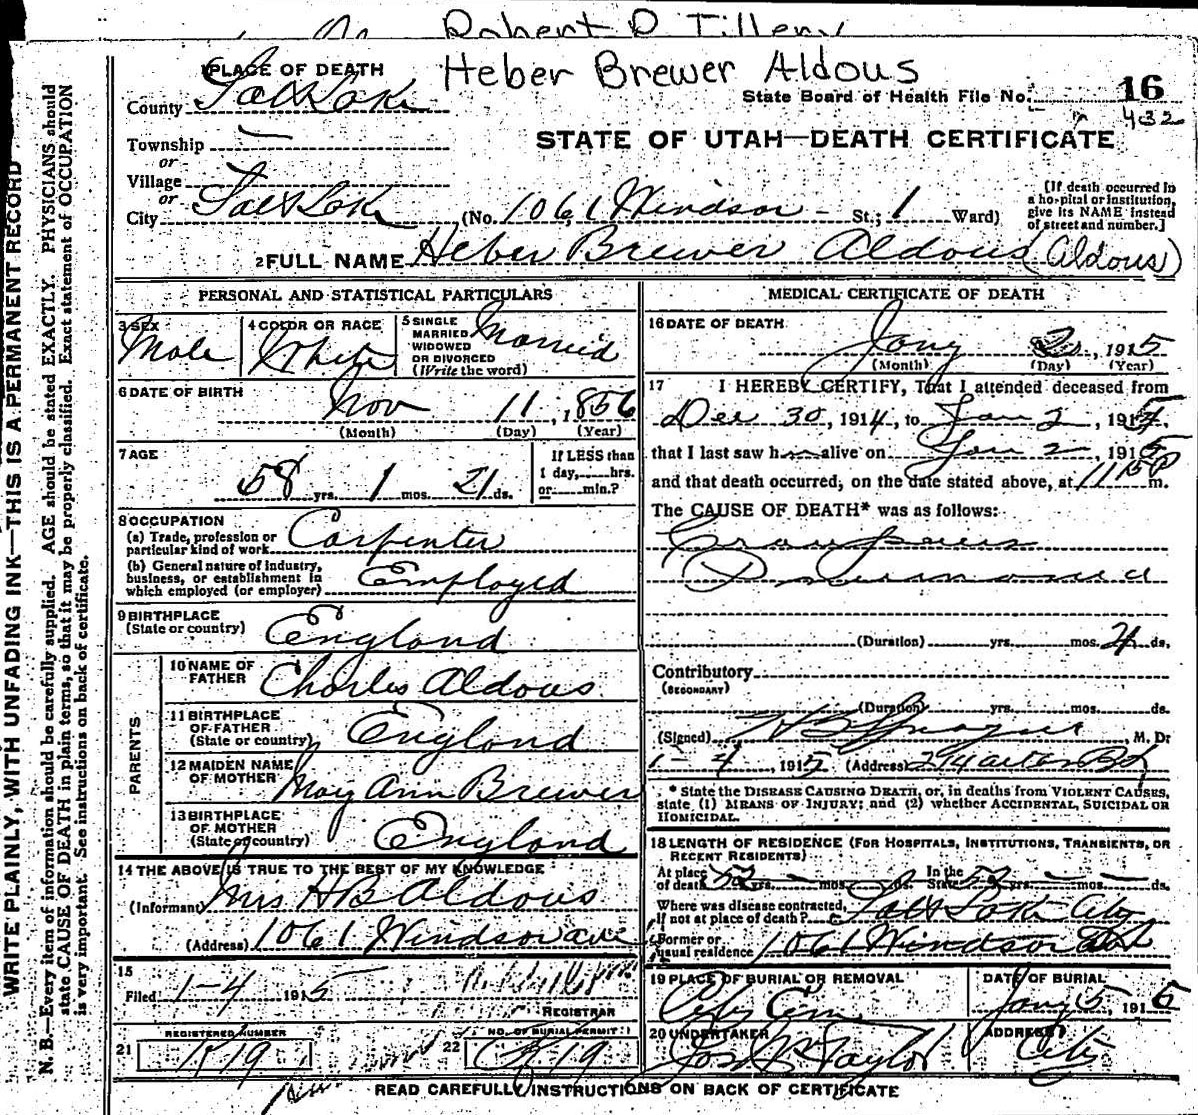 Robert P Tillery
Heber Brewer Aldous
1 PLACE OF DEATH
County Salt Lake
State Board of Health File No. 16
432
Township —
STATE OF UTAH—DEATH CERTIFICATE
or
Village
or
City Salt Lake (No. 1061 Windsor - St.; 1 Ward)
[If death occurred in a hospital or institution, give its NAME instead of street and number.]
2 FULL NAME Heber Brewer Aldous (Aldous)
PERSONAL AND STATISTICAL PARTICULARS
3 SEX Male
4 COLOR OR RACE White
5 SINGLE MARRIED WIDOWED OR DIVORCED (Write the word) Married
6 DATE OF BIRTH Nov 11, 1856
(Month) (Day) (Year)
7 AGE 58 yrs. 1 mos. 21 ds.
If LESS than 1 day,......hrs. or......min.?
8 OCCUPATION
(a) Trade, profession or particular kind of work Carpenter
(b) General nature of industry, business, or establishment in which employed (or employer) Employed
9 BIRTHPLACE (State or country) England
PARENTS
10 NAME OF FATHER Charles Aldous
11 BIRTHPLACE OF FATHER (State or country) England
12 MAIDEN NAME OF MOTHER May Ann Brewer
13 BIRTHPLACE OF MOTHER (State or country) England
14 THE ABOVE IS TRUE TO THE BEST OF MY KNOWLEDGE
(Informant) Mrs H B Aldous
(Address) 1061 Windsor ave
15
Filed 1-4 1915
REGISTRAR
REGISTERED NUMBER
21 K 19
NO. OF BURIAL PERMIT
22 K 19
MEDICAL CERTIFICATE OF DEATH
16 DATE OF DEATH Jany 2, 1915
(Month) (Day) (Year)
17 I HEREBY CERTIFY, That I attended deceased from
Dec 30, 1914, to Jan 2, 1915
that I last saw him alive on Jan 2, 1915
and that death occurred, on the date stated above, at 11 15 P m.
The CAUSE OF DEATH* was as follows:
Croupous
Pneumonia
(Duration) yrs. mos. 4 ds.
Contributory
(SECONDARY)
(Duration) yrs. mos. ds.
(Signed) H B Sprague, M. Dr
1-4, 1915 (Address)
* State the DISEASE CAUSING DEATH, or, in deaths from VIOLENT CAUSES,
state (1) MEANS OF INJURY; and (2) whether ACCIDENTAL, SUICIDAL OR
HOMICIDAL.
18 LENGTH OF RESIDENCE (FOR HOSPITALS, INSTITUTIONS, TRANSIENTS, OR
RECENT RESIDENTS)
At place of death 52 yrs. — mos. ds. In the State 52 yrs. — mos. — ds.
Where was disease contracted, if not at place of death? Salt Lake City
Former or usual residence 1061 Windsor
19 PLACE OF BURIAL OR REMOVAL City Cem
DATE OF BURIAL Jany 5, 1915
20 UNDERTAKER Jos Wm Taylor
ADDRESS City
READ CAREFULLY INSTRUCTIONS ON BACK OF CERTIFICATE
WRITE PLAINLY, WITH UNFADING INK—THIS IS A PERMANENT RECORD
N. B.—Every item of information should be carefully supplied. AGE should be stated EXACTLY. PHYSICIANS should
state CAUSE OF DEATH in plain terms, so that it may be properly classified. Exact statement of OCCUPATION
is very important. See instructions on back of certificate.